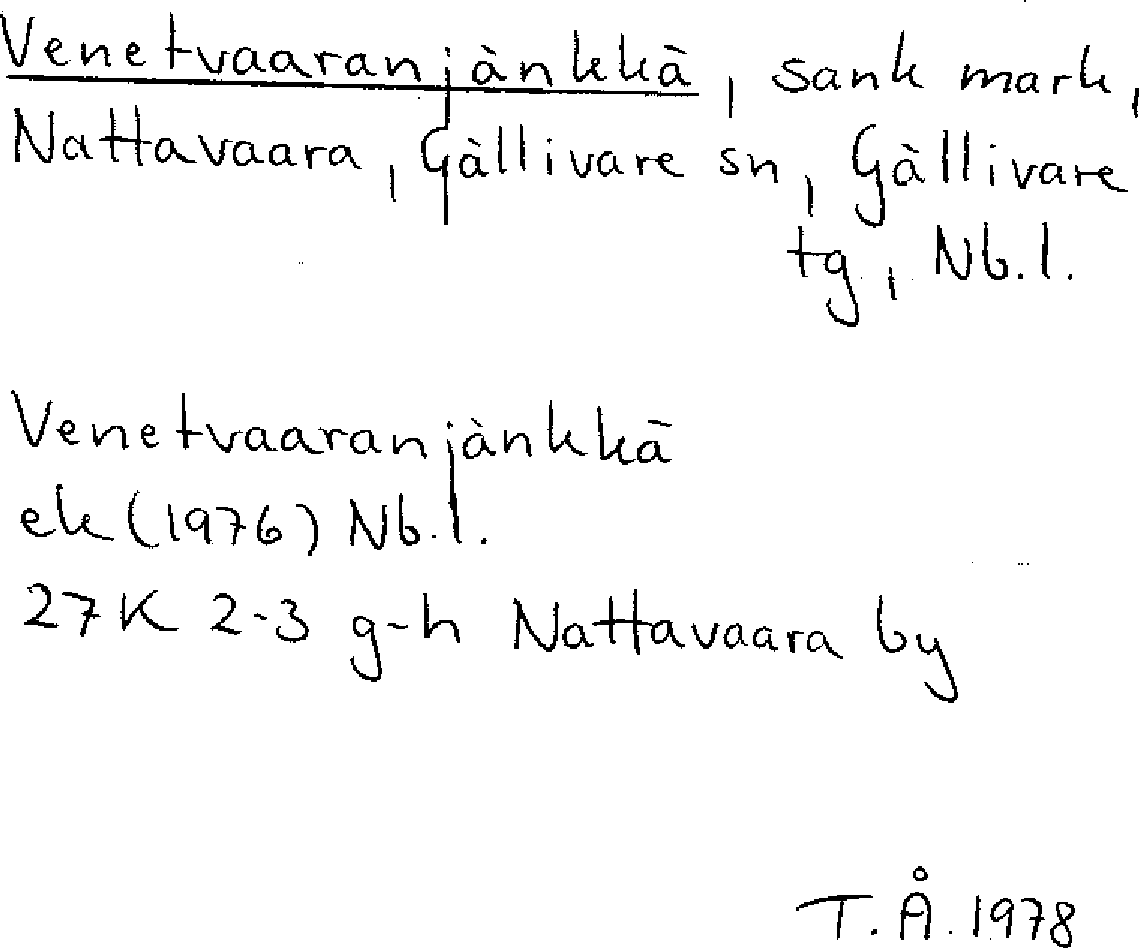 Venetvaaranjänkkä, sank mark,
Nattavaara, Gällivare sn, Gällivare
tg, Nb.l.
Venetvaaranjänkkä
ek (1976) Nb.l.
27K 2-3 g-h Nattavaara by
T.Å. 1978